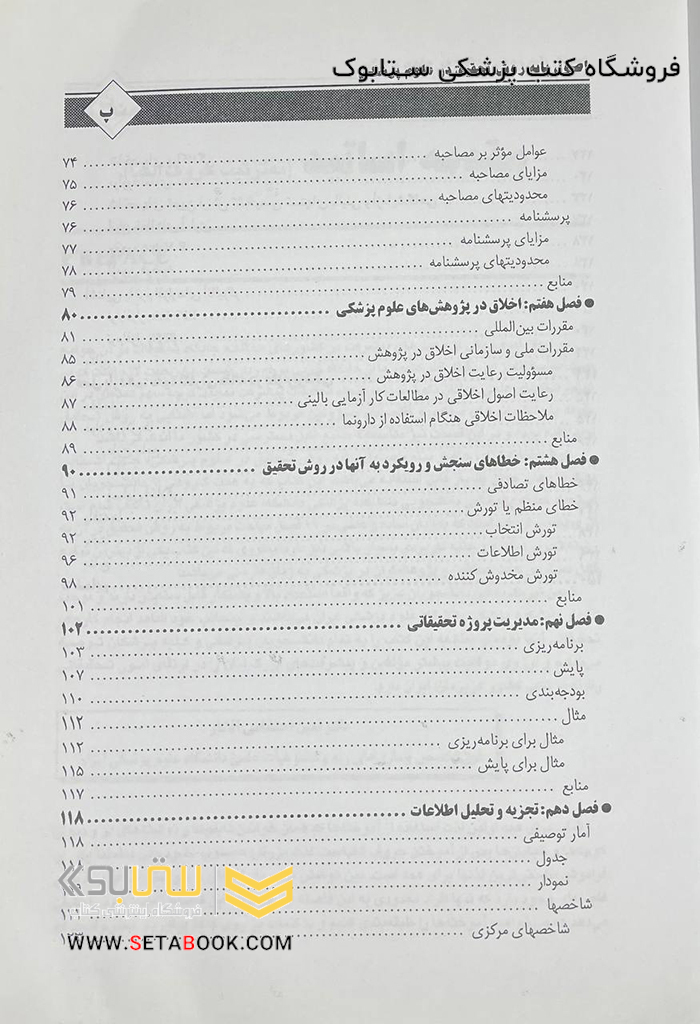 فروشگاه کتب پزشکی ستابوک
پ
عوامل مؤثر بر مصاحبه ........ ۷۴
مزایای مصاحبه ........ ۷۵
محدودیتهای مصاحبه ........ ۷۶
پرسشنامه ........ ۷۶
مزایای پرسشنامه ........ ۷۷
محدودیتهای پرسشنامه ........ ۷۸
منابع ........ ۷۹
● فصل هفتم: اخلاق در پژوهش‌های علوم پزشکی ........ ۸۰
مقررات بین‌المللی ........ ۸۱
مقررات ملی و سازمانی اخلاق در پژوهش ........ ۸۵
مسؤولیت رعایت اخلاق در پژوهش ........ ۸۶
رعایت اصول اخلاقی در مطالعات کار آزمایی بالینی ........ ۸۷
ملاحظات اخلاقی هنگام استفاده از دارونما ........ ۸۸
منابع ........ ۸۹
● فصل هشتم: خطاهای سنجش و رویکرد به آنها در روش تحقیق ........ ۹۰
خطاهای تصادفی ........ ۹۱
خطای منظم یا تورش ........ ۹۲
تورش انتخاب ........ ۹۲
تورش اطلاعات ........ ۹۶
تورش مخدوش کننده ........ ۹۸
منابع ........ ۱۰۱
● فصل نهم: مدیریت پروژه تحقیقاتی ........ ۱۰۲
برنامه‌ریزی ........ ۱۰۳
پایش ........ ۱۰۷
بودجه‌بندی ........ ۱۱۰
مثال ........ ۱۱۲
مثال برای برنامه‌ریزی ........ ۱۱۲
مثال برای پایش ........ ۱۱۵
منابع ........ ۱۱۷
● فصل دهم: تجزیه و تحلیل اطلاعات ........ ۱۱۸
آمار توصیفی ........ ۱۱۸
جدول ........ ۱۱۸
نمودار ........
شاخصها ........
شاخصهای مرکزی ........ ۱۲۳
ستابوک
فروشگاه اینترنتی کتاب
WWW.SETABOOK.COM